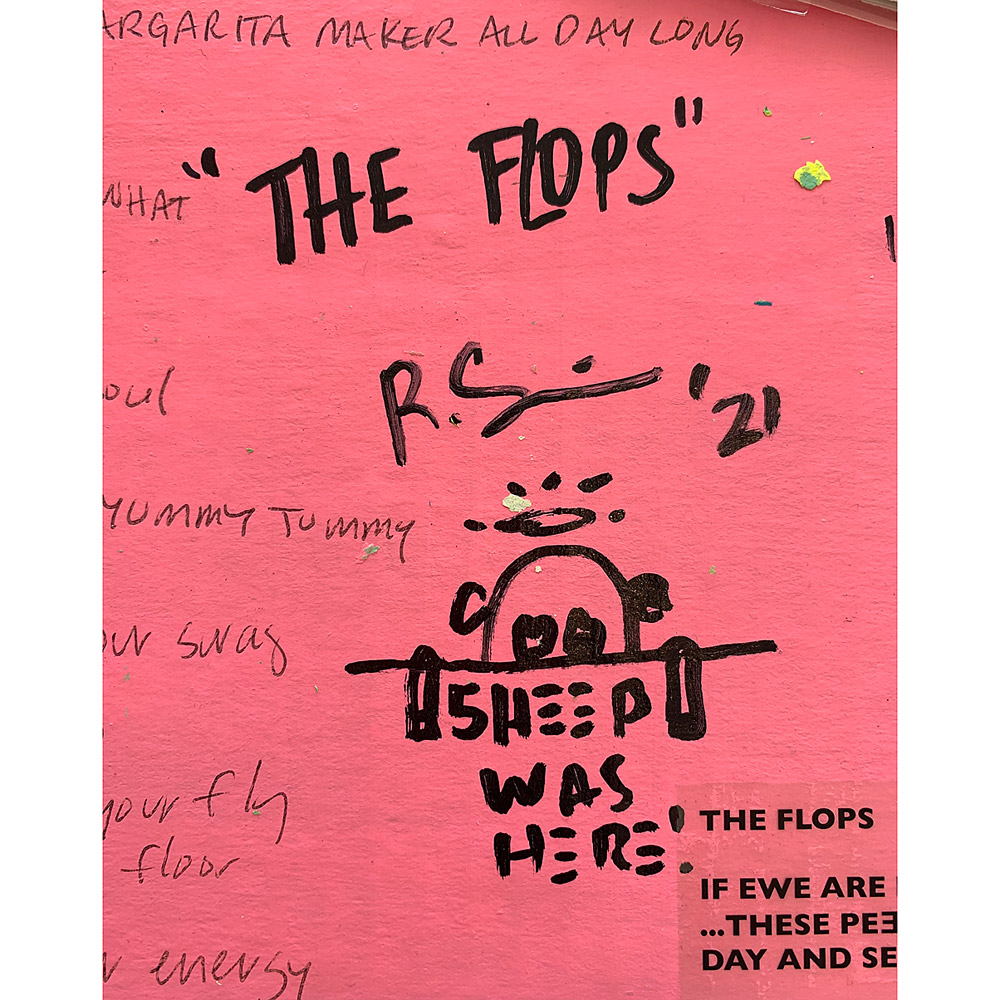 ARGARITA MAKER ALL DAY LONG
"THE FLOPS"
WHAT
R.S '21
oul
YUMMY TUMMY
our swag
SHEEP
WAS
HERE!
your fly
floor
energy
THE FLOPS
IF EWE ARE
...THESE PEE
DAY AND SE